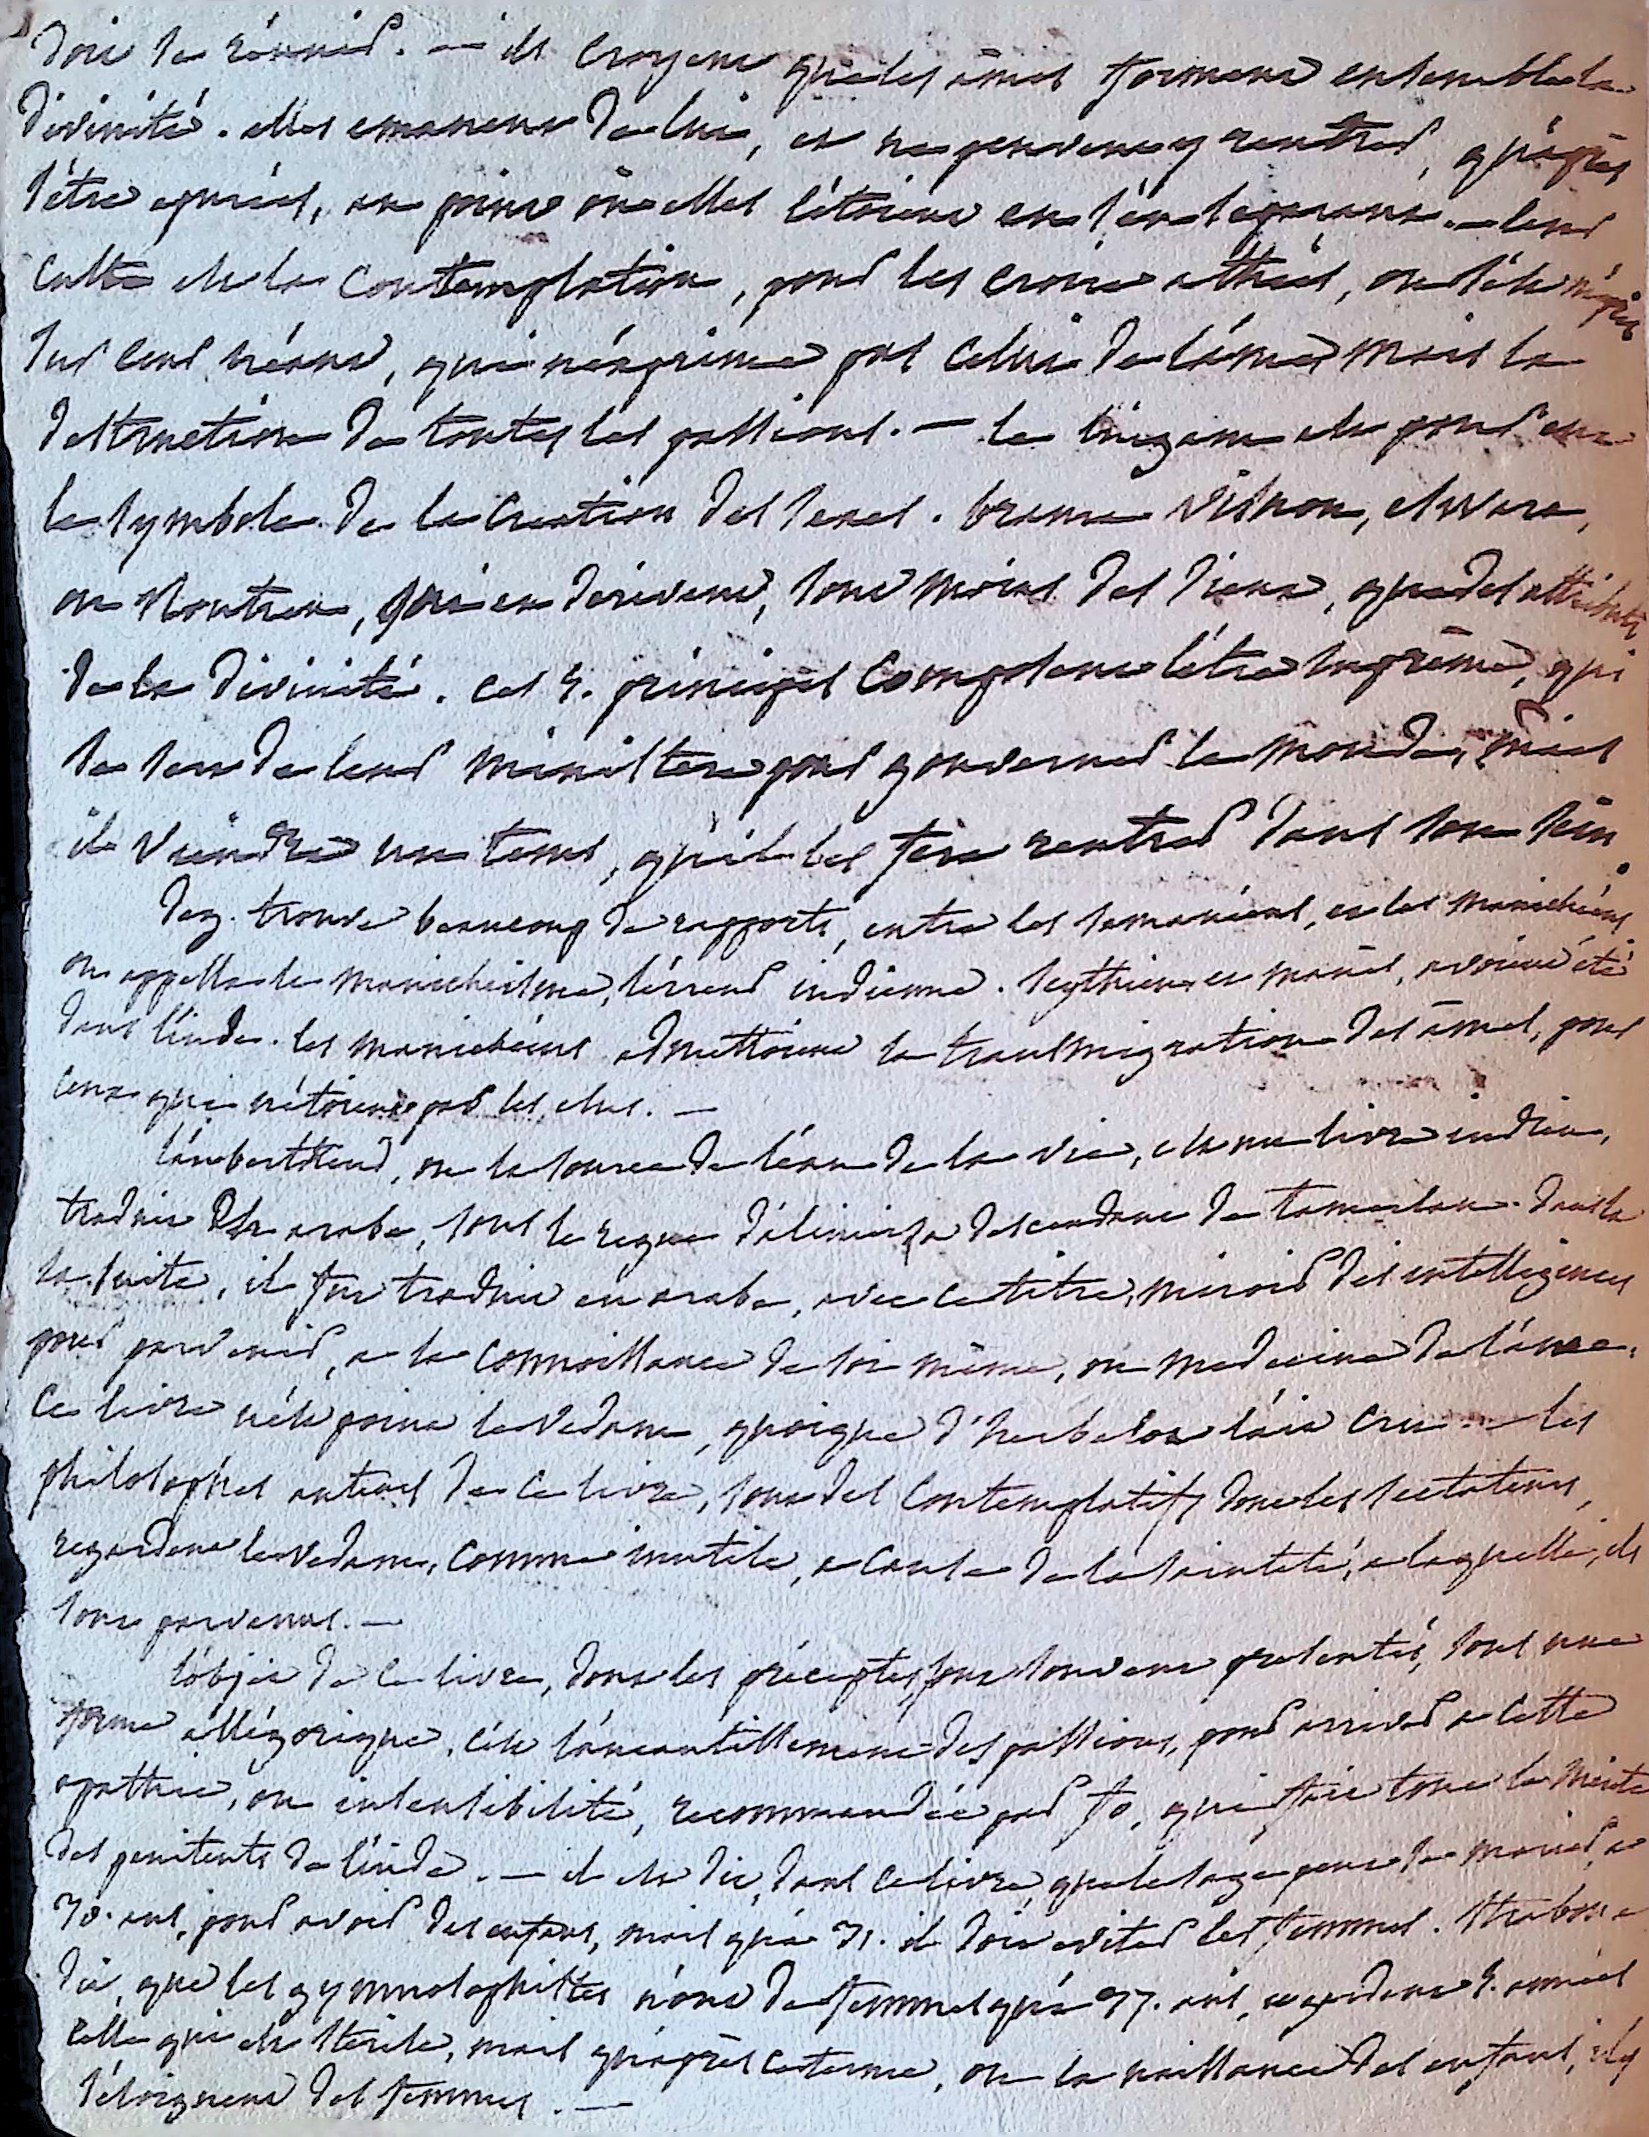 doit se réunir. — ils croyent que les âmes forment ensemble la
divinité. elles emanent de lui, et ne peuvent y rentrer, qu'après
s'être epurées, au point où elles étoient en s'en separant. — leur
culte est la contemplation, pour les croire athées, on s'est mépris
sur leur néant, qui n'exprime pas celui de l'âme mais la
destruction de toutes les passions. — le lingam est pour eux
le symbole de la creation des sexes. brama vishnou, eswara,
ou routren, qui en derivent, sont moins des dieux, que des attributs
de la divinité. ces 3. principes composent l'être suprême, qui
se sert de leur ministere pour gouverner le monde, mais
il viendra un tems, qu'il les fera rentrer dans son sein.
deg. trouve beaucoup de rapports, entre les samanéens, et les manichéens
on appella le manicheisme, l'erreur indienne. scythien et manès, avoient été
dans l'inde. les manichéens admettoient la transmigration des âmes, pour
ceux qui n'étoient pas les elus. —
l'anbertkend, ou la source de l'eau de la vie, est un livre indien,
traduit en arabe, sous le regne d'alimirza descendant de tamerlan. dans la
la suite, il fut traduit en arabe, avec ce titre, miroir des intelligences
pour parvenir, a la connoissance de soi même, ou medecine de l'âme.
ce livre n'est point le vedam, quoique d'herbelot l'ait cru. — les
philosophes auteurs de ce livre, sont des contemplatifs dont les sectateurs,
regardent le vedam, comme inutile, a cause de la sainteté, a laquelle, ils
sont parvenus. —
l'objet de ce livre, dont les préceptes sont souvent presentés, sous une
forme allégorique, c'est l'aneantissement des passions, pour arriver a cette
apathie, ou insensibilité, recommandée par fo, qui fait tout le merite
des penitents de l'inde. — il est dit, dans ce livre, que le sage peut se marier, a
30. ans, pour avoir des enfans, mais qu'a 35. il doit eviter les femmes. strabon a
dit, que les gymnosophistes n'ont de femmes qu'a 37. ans, et gardent 5. années
celle qui est sterile, mais qu'après ce terme, ou la naissance des enfans, ils
s'éloignent des femmes. —